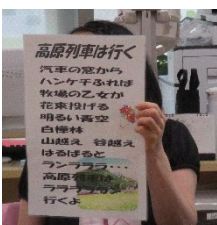 高原列車は行く
汽車の窓から
ハンケチふれば
牧場の乙女が
花束投げる
明るい青空
白樺林
山越え 谷越え
はるばると
ランラララ・・
高原列車は
ラララララ
行くよ